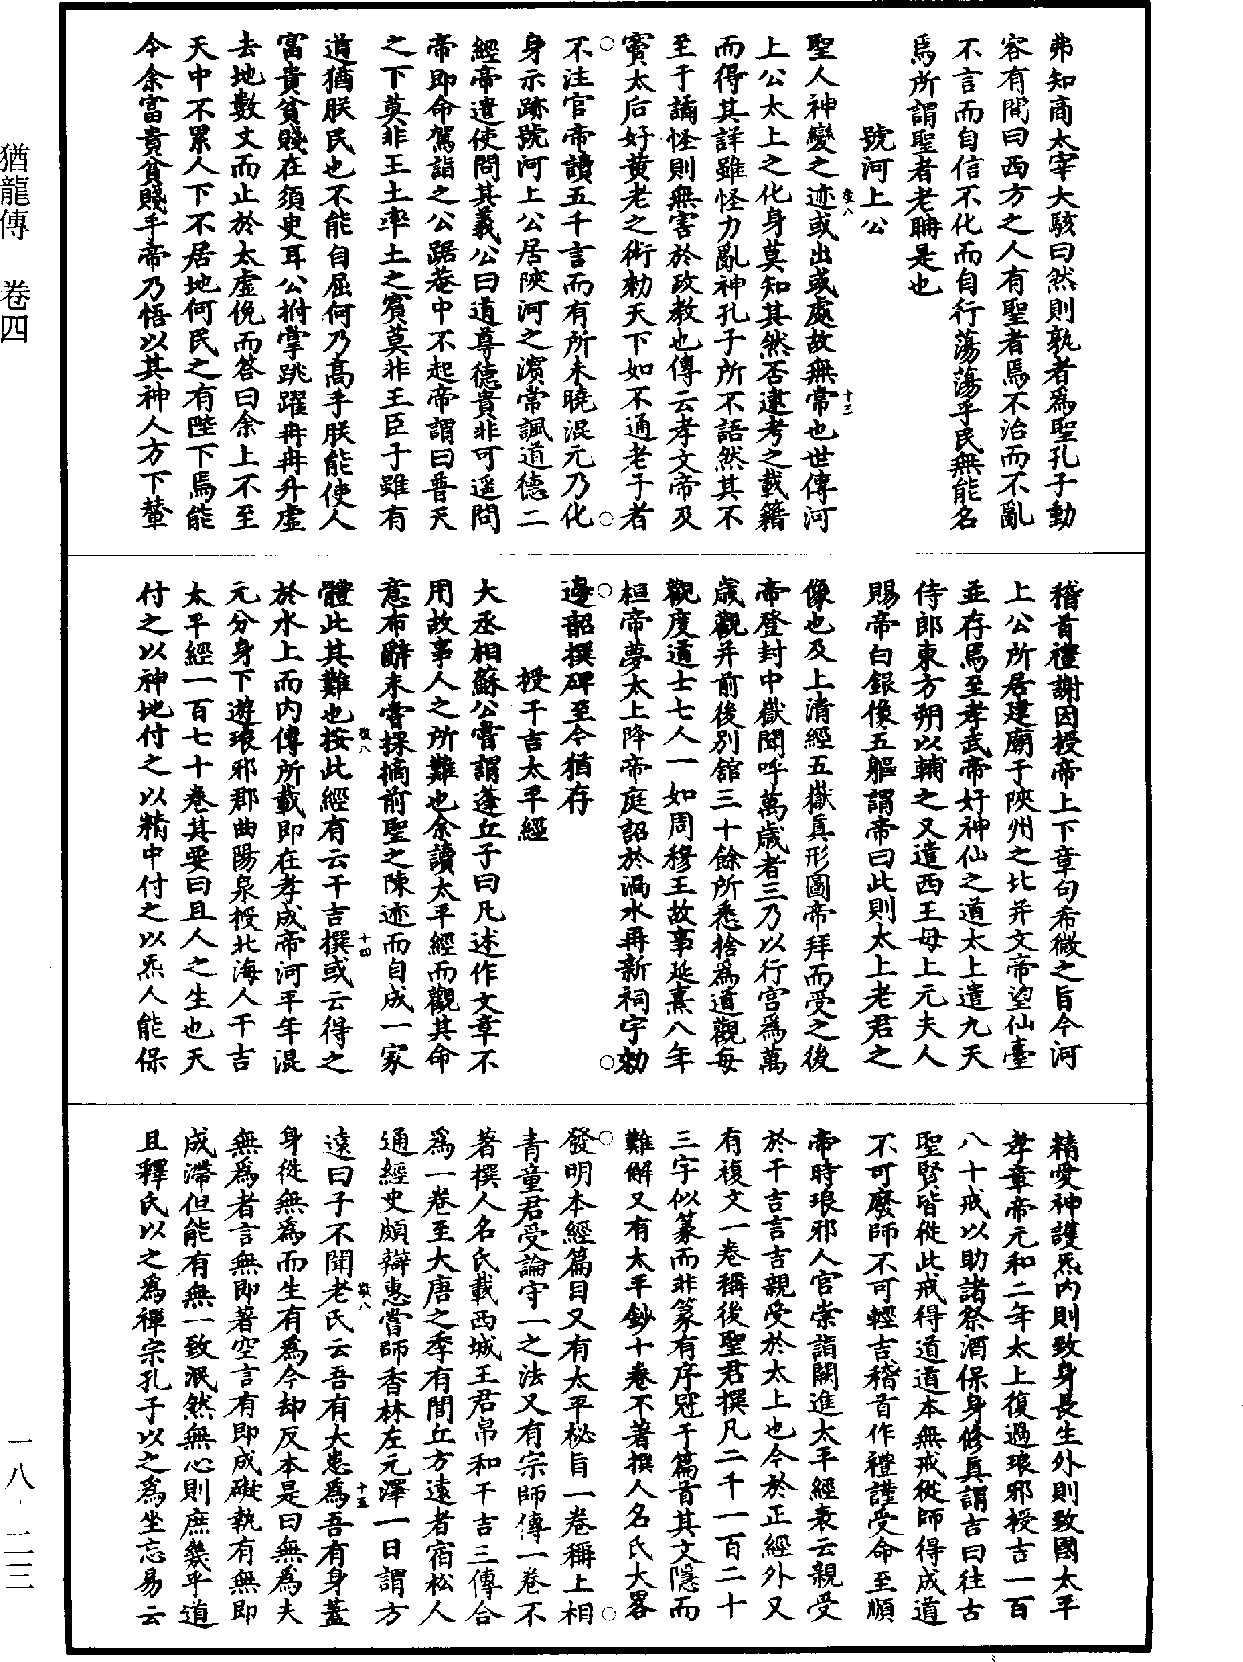 猶龍傳　卷四
一八·二三
弗知商太宰大駭曰然則孰者爲聖孔子動
容有間曰西方之人有聖者焉不治而不亂
不言而自信不化而自行蕩蕩乎民無能名
焉所謂聖者老聃是也
號河上公
聖人神變之迹或出或處故無常也世傳河
上公太上之化身莫知其然否逮考之載籍
而得其詳雖怪力亂神孔子所不語然其不
至于譎怪則無害於政教也傳云孝文帝及
竇太后好黃老之術勑天下如不通老子者
不注官帝讀五千言而有所未曉混元乃化
身示跡號河上公居陝河之濱常諷道德二
經帝遣使問其義公曰道尊德貴非可遥問
帝即命駕詣之公踞菴中不起帝謂曰普天
之下莫非王土率土之賓莫非王臣子雖有
道猶朕民也不能自屈何乃高乎朕能使人
富貴貧賤在須臾耳公拊掌跳躍冉冉升虛
去地數丈而止於太虛俛而答曰余上不至
天中不累人下不居地何民之有陛下焉能
令余富貴貧賤乎帝乃悟以其神人方下輦
稽首禮謝因授帝上下章句希微之旨今河
上公所居建廟于陝州之北并文帝望仙臺
並存焉至孝武帝好神仙之道太上遣九天
侍郎東方朔以輔之又遣西王母上元夫人
賜帝白銀像五軀謂帝曰此則太上老君之
像也及上清經五嶽真形圖帝拜而受之後
帝登封中嶽聞呼萬歲者三乃以行宮爲萬
歲觀并前後別舘三十餘所悉捨爲道觀每
觀度道士七人一如周穆王故事延熹八年
桓帝夢太上降帝庭詔於渦水再新祠宇勑
邊韶撰碑至今猶存
授干吉太平經
大丞相蘇公嘗謂蓬丘子曰凡述作文章不
用故事人之所難也余讀太平經而觀其命
意布辭未嘗採摘前聖之陳迹而自成一家
體此其難也按此經有云干吉撰或云得之
於水上而內傳所載即在孝成帝河平年混
元分身下遊琅邪郡曲陽泉授北海人干吉
太平經一百七十卷其要曰且人之生也天
付之以神地付之以精中付之以炁人能保
精愛神護炁內則致身長生外則致國太平
孝章帝元和二年太上復過琅邪授吉一百
八十戒以助諸祭酒保身修真謂吉曰往古
聖賢皆從此戒得道道本無戒從師得成道
不可廢師不可輕吉稽首作禮謹受命至順
帝時琅邪人宮崇詣闕進太平經表云親受
於干吉言吉親受於太上也今於正經外又
有複文一卷稱後聖君撰凡二千一百二十
三字似篆而非篆有序冠于篇首其文隱而
難解又有太平鈔十卷不著撰人名氏大畧
發明本經篇目又有太平祕旨一卷稱上相
青童君受論守一之法又有宗師傳一卷不
著撰人名氏載西城王君帛和干吉三傳合
爲一卷至大唐之季有閭丘方遠者宿松人
通經史頗辯惠嘗師香林左元澤一日謂方
遠曰子不聞老氏云吾有大患爲吾有身蓋
身從無爲而生有爲今却反本是曰無爲夫
無爲者言無即著空言有即成礙執有無即
成滯但能有無一致泯然無心則庶幾乎道
且釋氏以之爲禪宗孔子以之爲坐忘易云